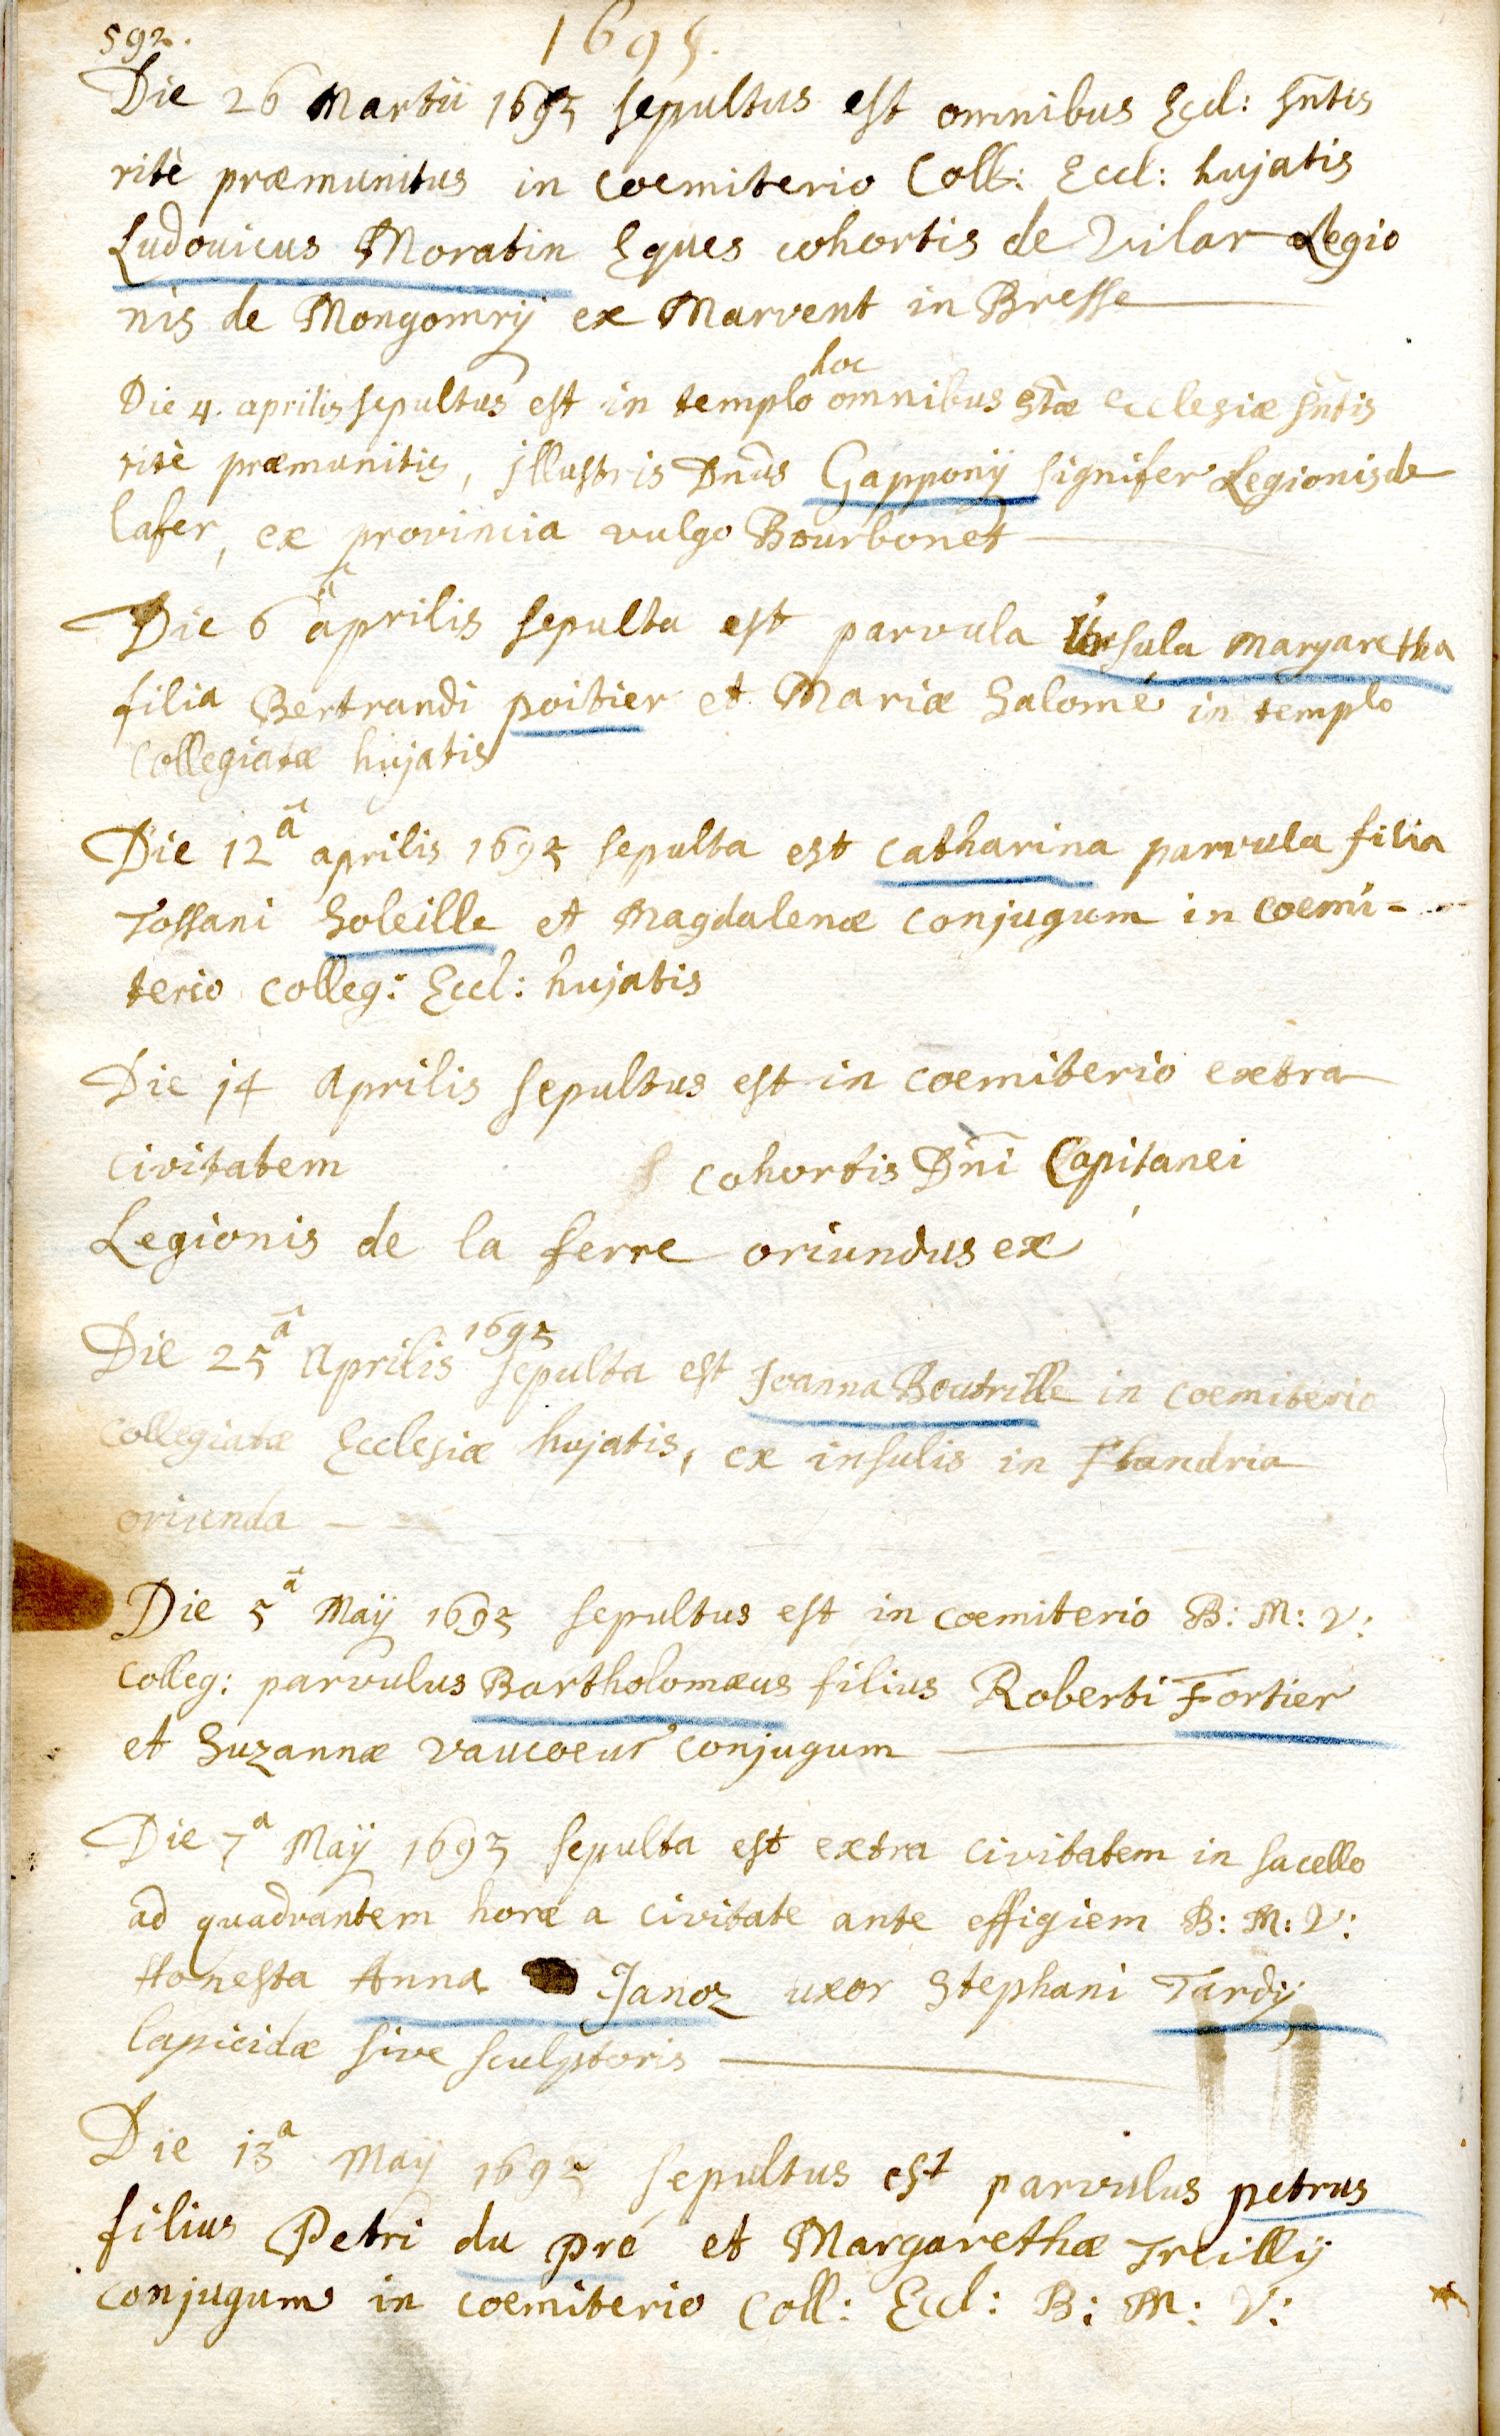 592.
1695.
Die 26 Martii 1695 sepultus est omnibus Eccl: Sñtis
ritè præmunitus in coemiterio Coll: Eccl: hujatis
Ludovicus Moratin Eques cohortis de Vilar Legio
nis de Mongomrij ex Marvent in Bresse
hoc
Die 4. aprilis sepultus est in templo omnibus Stæ ecclesiæ Sñtis
ritè præmunitis, illustris Dnus Gapponij signifer Legionis de
lafer, ex provincia vulgo Bourbonet
Die 6ª aprilis sepulta est parvula Ursula Margaretha
filia Bertrandi poitier et Mariæ Salomé in templo
Collegiatæ hujatis
Die 12ª aprilis 1695 sepulta est Catharina parvula filia
Tossani Soleille et Magdalenæ conjugum in coemi-
terio colleg: Eccl: hujatis
Die 14 Aprilis sepultus est in coemiterio extra
civitatem cohortis Dñi Capitanei
Legionis de la ferre oriundus ex
1695
Die 25ª Aprilis sepulta est Joanna Boutrille in coemiterio
collegiatæ Ecclesiæ hujatis, ex insulis in Flandria
oriunda
Die 5ª Maÿ 1695 sepultus est in coemiterio B: M: V:
Colleg: parvulus Bartholomæus filius Roberti Fortier
et Suzannæ vaucoeur conjugum
Die 7ª Maÿ 1695 sepulta est extra civitatem in sacello
ad quadrantem horæ a civitate ante effigiem B: M: V:
Honesta Anna Janoz uxor Stephani Tardij
lapicidæ sive sculptoris
Die 13ª Maÿ 1695 sepultus est parvulus petrus
filius Petri du pré et Margarethæ Treillij
conjugum in coemiterio Coll: Eccl: B: M: V: